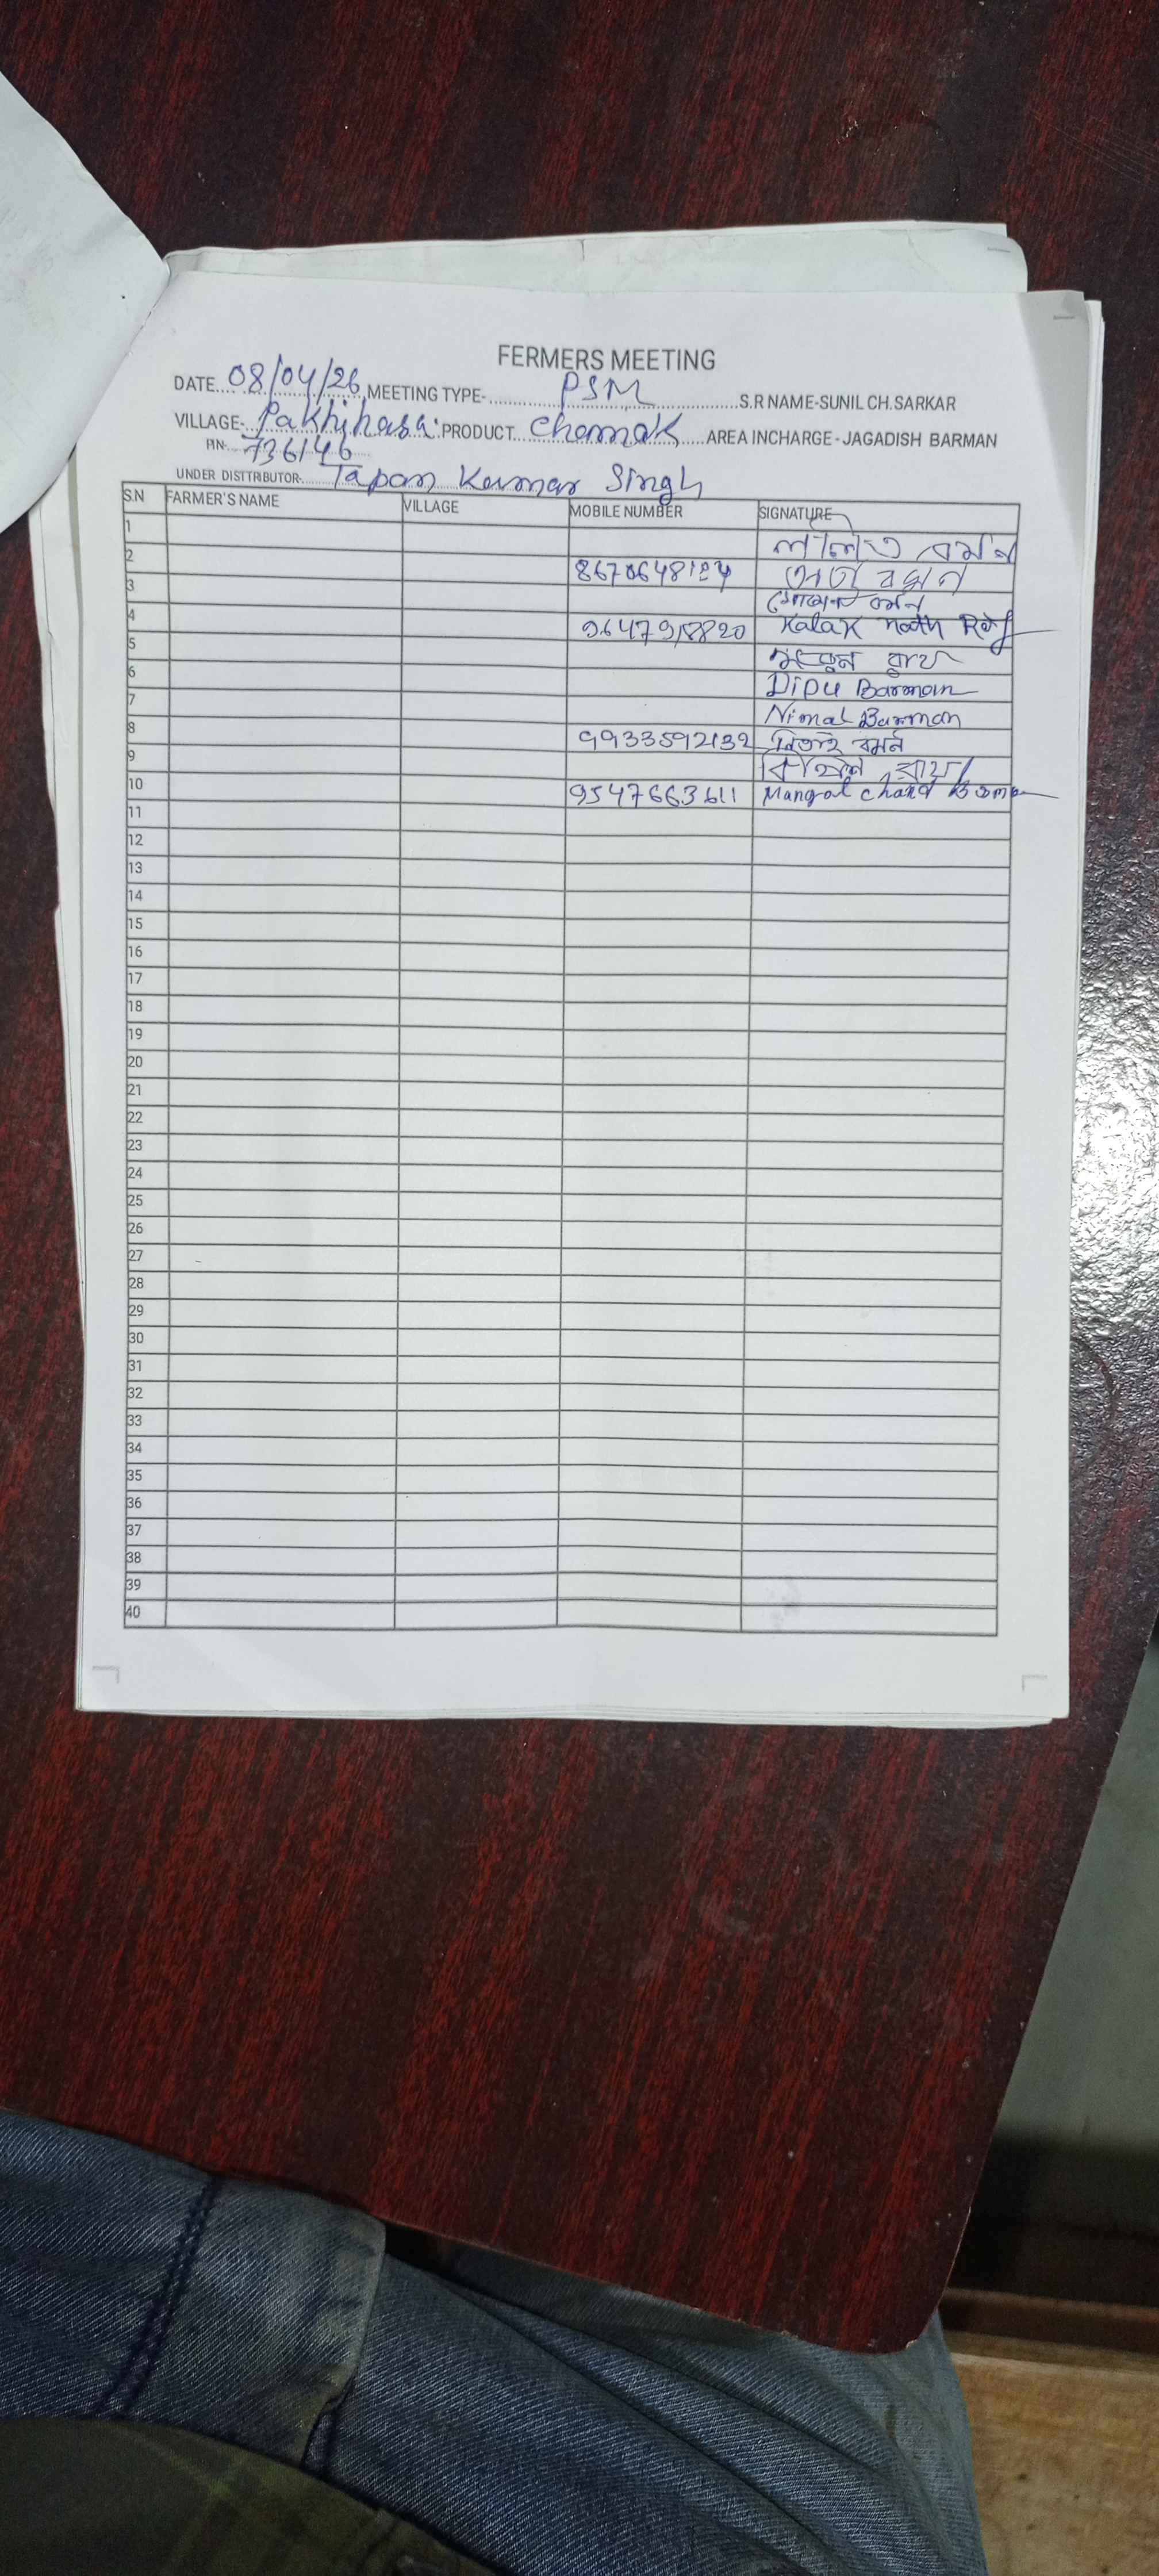 FERMERS MEETING
DATE....08/04/26 MEETING TYPE-..........PSM..........S.R NAME-SUNIL CH.SARKAR
VILLAGE-Pakhihaga PRODUCT...Chamak....AREA INCHARGE - JAGADISH BARMAN
PIN-736146
UNDER DISTTRIBUTOR-......Tapan Kumar Singh
S.N FARMER'S NAME VILLAGE MOBILE NUMBER SIGNATURE
1 ললিত বর্মন
2 8670648124
3 বর্মন
4 Kalak nath Roy
5 রায়
6 Dipu Barman
7 Nimal Barman
8 9933592132 নিতাই বর্মন
9 রায়
10 9547663611 Mangal chand
11
12
13
14
15
16
17
18
19
20
21
22
23
24
25
26
27
28
29
30
31
32
33
34
35
36
37
38
39
40